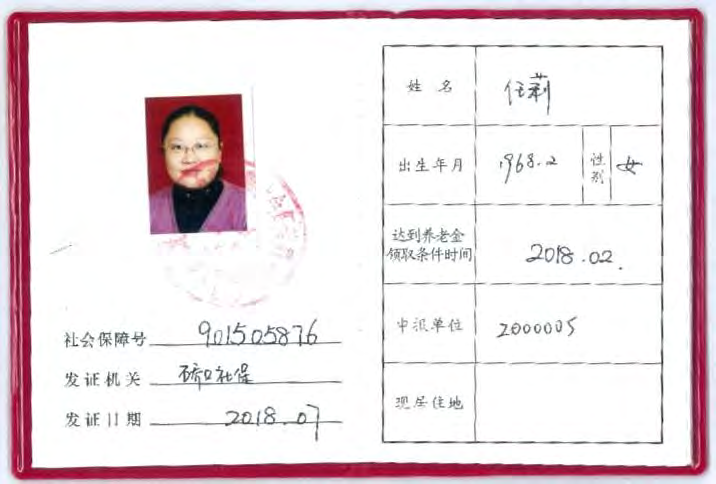 社会保障号 901505876
发证机关 硚口社保
发证日期 2018.07
姓名 任莉
出生年月 1968.2 性别 女
达到养老金领取条件时间 2018.02.
申报单位 2000005
现居住地